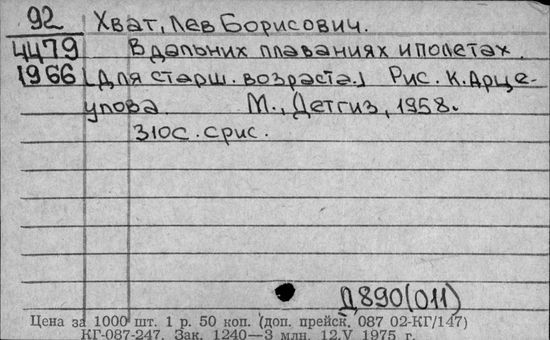 92 Хват, Лев Борисович.
4479 В дальних плаваниях и полетах.
1966 [Для старш. возраста.] Рис. К. Арце-
улова. М., Детгиз, 1958.
310с. с рис.
Д890(011)
Цена за 1000 шт. 1 р. 50 коп. (доп. прейск. 087 02-КГ/147)
КГ-087-247. Зак. 1240—3 млн. 12.V 1975 г.